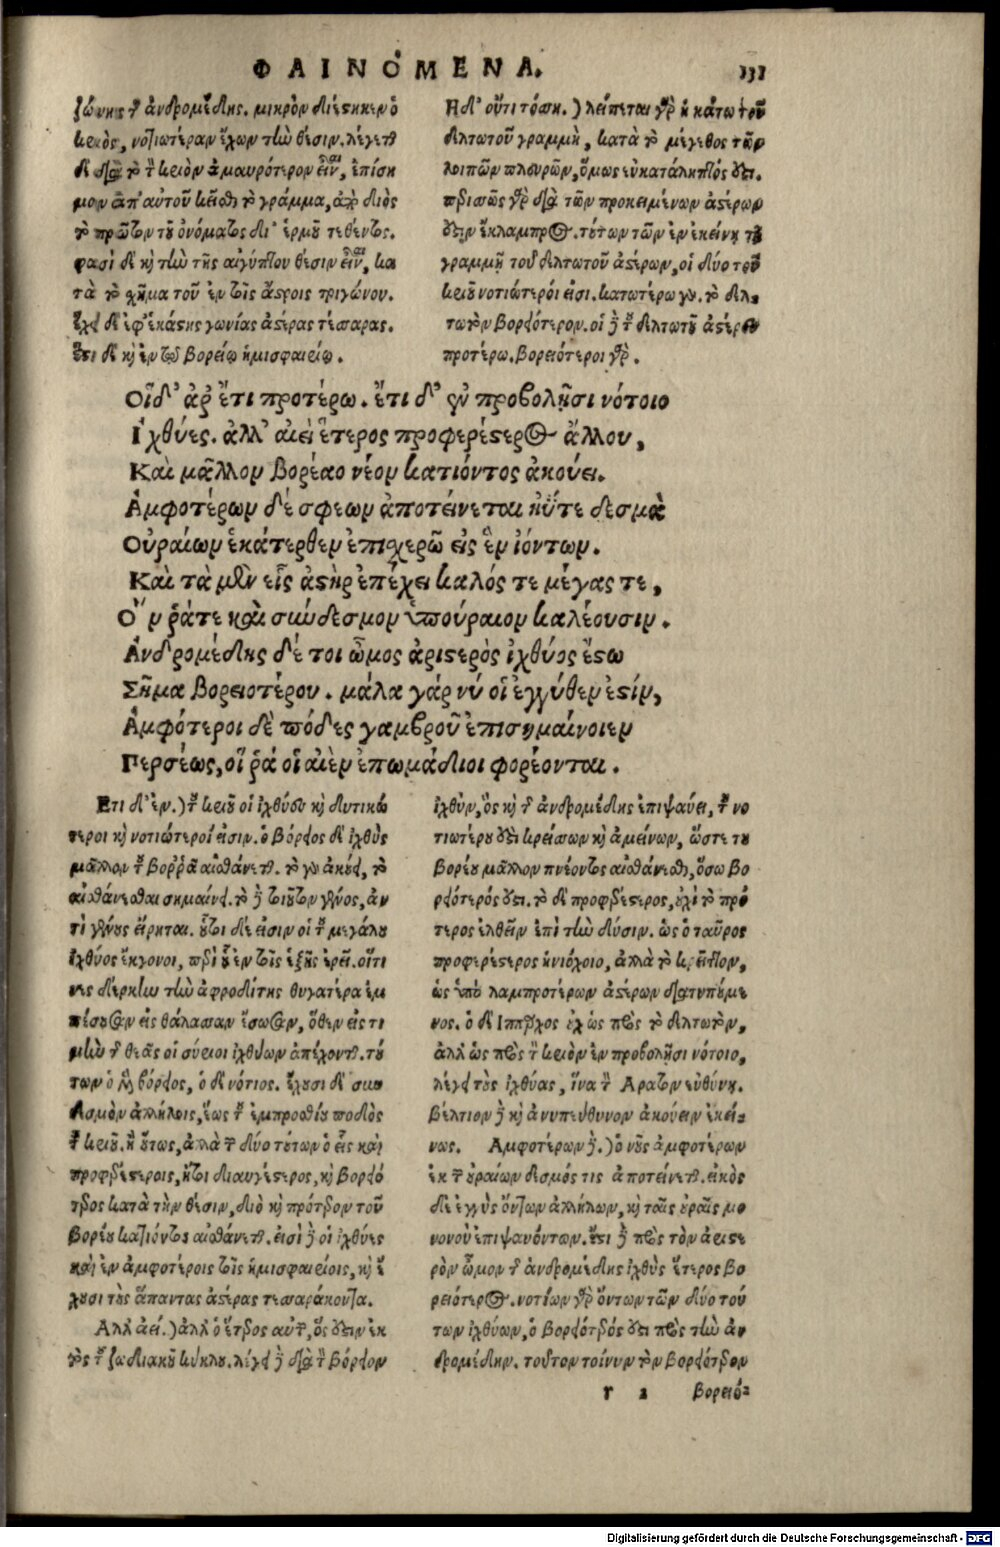 ΦΑΙΝΟΜΕΝΑ.
131
ζώνης τ ἀνδρομέδης. μικρὸν διέστηκεν ὁ
κειὸς, νοτιωτέραν ἔχων τὴν θέσιν. λέγεται
δὲ διὰ τὸ τ κειὸν ἀμαυρότερον εἶναι, ἐπίση
μον ἀπ' αὐτοῦ κεῖσθαι τὸ γράμμα, ἀπὸ διὸς
τὸ πρῶτον τοῦ ὀνόματος δι' ἑρμοῦ τεθέντος.
φασὶ δὲ καὶ τὴν τῆς αἰγύπτου θέσιν εἶναι, κα
τὰ τὸ σχῆμα τοῦ ἐν τοῖς ἄστροις τριγώνου.
ἔχει δὲ ἐφ' ἑκάστης γωνίας ἀστέρας τέσσαρας.
ἔστι δὲ καὶ ἐν τῷ βορείῳ ἡμισφαιρίῳ.
Η δ' οὔτι τόση.) λείπεται γὰρ ἡ κάτω τοῦ
δελτωτοῦ γραμμὴ, κατὰ τὸ μέγεθος τῶν
λοιπῶν πλευρῶν, ὅμως εὐκατάληπτός ἐστι.
περισσῶς γὰρ διὰ τῶν προκειμένων ἀστέρων
ἐστὶν ἔκλαμπρος. τούτων τῶν ἐν ἐκείνῃ τῇ
γραμμῇ τοῦ δελτωτοῦ ἀστέρων, οἱ δύο τοῦ
κειοῦ νοτιώτεροί εἰσι. κατωτέρω γοῦν. τὸ δελ-
τωτὸν βορειότερον. οἱ δὲ τ δελτωτοῦ ἀστέρες
προτέρω. βορειότεροι γάρ.
Οἵδ' ἀρ ἔτι προτέρω. ἔτι δ' ἐν προβολῇσι νότοιο
Ἰχθύες. ἀλλ' αἰεὶ ἕτερος προφερέστερος ἄλλου,
Καὶ μᾶλλον βορέαο νέον κατιόντος ἀκούει.
Ἀμφοτέρων δέ σφεων ἀποτείνεται ἠΰτε δεσμὰ
Οὐραίων ἑκάτερθεν ἐπισχερῶ εἰς ἓν ἰόντων.
Καὶ τὰ μὲν εἷς ἀστὴρ ἐπέχει καλός τε μέγας τε,
Ὅν ῥάτε καὶ σύνδεσμον ὑπούραιον καλέουσιν.
Ἀνδρομέδης δέ τοι ὦμος ἀριστερὸς ἰχθύος ἔστω
Σῆμα βορειοτέρου. μάλα γάρ νύ οἱ ἐγγύθεν ἐστίν,
Ἀμφότεροι δὲ πόδες γαμβροῦ ἐπισημαίνοιεν
Περσέως, οἵ ῥά οἱ αἰὲν ἐπωμάδιοι φορέονται.
Ετι δ' ἐν.) τ κειοῦ οἱ ἰχθύες καὶ δυτικώ
τεροι καὶ νοτιώτεροί εἰσιν. ὁ βόρειος δὲ ἰχθὺς
μᾶλλον τ βορρᾶ αἰσθάνεται. τὸ γοῦν ἀκούει, τὸ
αἰσθάνεσθαι σημαίνει. τὸ δὲ τοιοῦτον γένος, ἀν
τὶ γένους εἴρηται. οὗτοι δέ εἰσιν οἱ τ μεγάλου
ἰχθύος ἔκγονοι, περὶ οὗ ἐν τοῖς ἑξῆς ἐρεῖ. οἵτι
νες δέρκετω τὴν ἀφροδίτης θυγατέρα ἐμ
πέσουσαν εἰς θάλασσαν ἔσωσαν, ὅθεν εἰς τι
μὴν τ θεᾶς οἱ σύειοι ἰχθύων ἀπέχονται. τού
των ὁ μὲν βόρειος, ὁ δὲ νότιος. ἔχουσι δὲ συν
δεσμὸν ἀλλήλοις, ἕως τ ἐμπροσθίου ποδὸς
τ κειοῦ. καὶ οὕτως, ἀλλὰ τ δύο τούτων ὁ εἷς καὶ
προφερέστερος, ἤτοι διαυγέστερος, καὶ βορειό
τερος κατὰ τὴν θέσιν, διὸ καὶ πρότερον τοῦ
βορέου κατιόντος αἰσθάνεται. εἰσὶ δὲ οἱ ἰχθύες
καὶ ἐν ἀμφοτέροις τοῖς ἡμισφαιρίοις, καὶ ἔ
χουσι τοὺς ἅπαντας ἀστέρας τεσσαράκοντα.
Αλλ αεί.) ἀλλ ὁ ἕτερος αὐτῶν, ὅς ἐστιν ἐκ
τὸς τ ζωδιακοῦ κύκλου. λέγει δὲ διὰ τ βόρειον
ἰχθὺν, ὃς καὶ τ ἀνδρομέδης ἐπιψαύει, τ νο
τιωτέρου ἐστὶ κρείσσων καὶ ἀμείνων, ὥστε τοῦ
βορέου μᾶλλον πνέοντος αἰσθάνεσθαι, ὅσῳ βο
ρειότερός ἐστι. τὸ δὲ προφερέστερος, οὐχὶ τὸ πρό
τερος ἐλθεῖν ἐπὶ τὴν δύσιν. ὡς ὁ ταῦρος
προφερέστερος ἡνιόχοιο, ἀλλὰ τὸ κρεῖττον,
ὡς ὑπὸ λαμπροτέρων ἀστέρων διατυπούμε
νος. ὁ δὲ Ἵππαρχος οὐχ ὡς πρὸς τὸ δελτωτὸν,
ἀλλ ὡς πρὸς τ κειὸν ἐν προβολῇσι νότοιο,
λέγει τοὺς ἰχθύας, ἵνα τ Αρατον εὐθύνῃ.
βέλτιον δὲ καὶ ἀνυπεύθυνον ἀκούειν ἐκεί-
νως. Αμφοτέρων δὲ.) ὁ νοῦς ἀμφοτέρων
ἐκ τ οὐραίων δεσμός τις ἀποτείνεται. εἰκὸς
δὲ ἐγγὺς ὄντων ἀλλήλων, καὶ ταῖς οὐραῖς μο
νονοὺ ἐπιψαυόντων. ἔστι δὲ πρὸς τὸν ἀριστε
ρὸν ὦμον τ ἀνδρομέδης ἰχθὺς ἕτερος βο
ρειότερος. νοτίων γὰρ ὄντων τῶν δύο τού
των ἰχθύων, ὁ βορειότερός ἐστι πρὸς τὴν ἀν
δρομέδην. τοῦτον τοίνυν τὸν βορειότερον
r 2 βορειό-
Digitalisierung gefördert durch die Deutsche Forschungsgemeinschaft - DFG